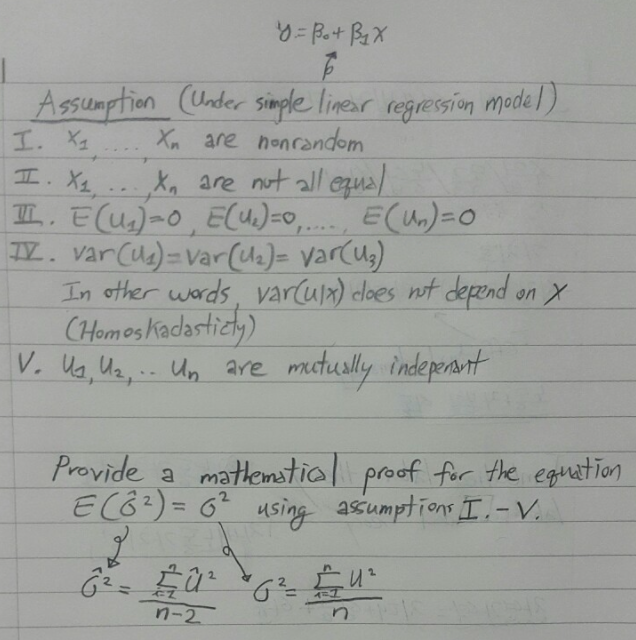 y = β₀ + β₁x
Assumption (Under simple linear regression model)
I. x₁, ...., xₙ are nonrandom
II. x₁, ..., xₙ are not all equal
III. E(u₁)=0, E(u₂)=0, ...., E(uₙ)=0
IV. var(u₁)=var(u₂)= var(u₃)
In other words, var(u|x) does not depend on x
(Homoskadasticty)
V. u₁, u₂, .. uₙ are mutually indepenant
Provide a mathematical proof for the equation
E(σ̂²) = σ² using assumptions I. - V.
σ̂² = Σᵢ₌₁ⁿ û² / n-2    σ² = Σᵢ₌₁ⁿ u² / n